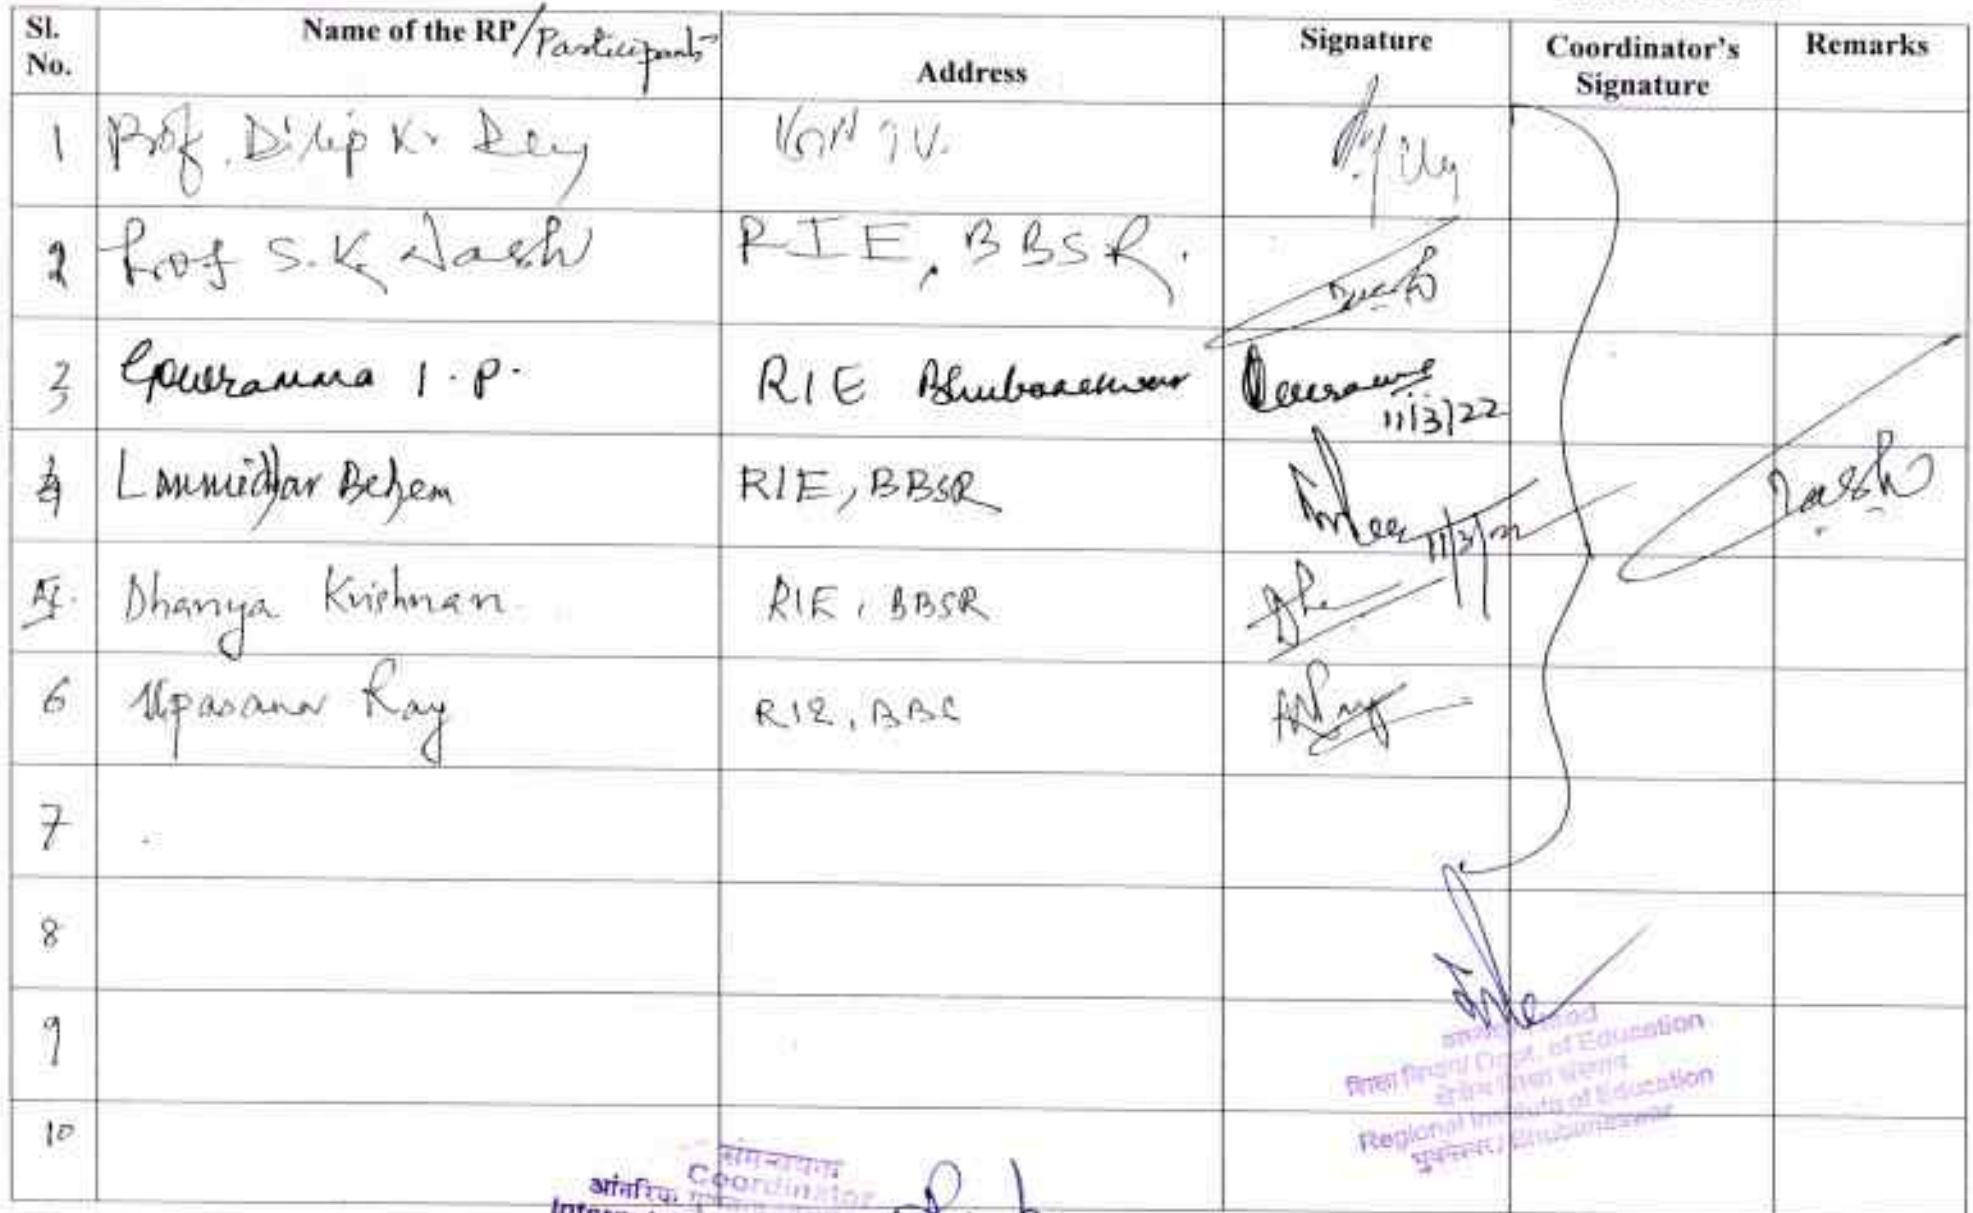 Sl. No. Name of the RP/Participants Address Signature Coordinator's Signature Remarks
1 Prof. Dilip Kr. Dey
2 Prof S.K. Dash RIE, BBSR.
3 Gowramma I.P. RIE Bhubaneswar 11/3/22
4 Laxmidhar Behera RIE, BBSR 11/3/22
5. Dhanya Krishnan. RIE, BBSR
6 Upasana Ray RIE, BBS
7
8
9
10
शिक्षा विभाग/ Dept. of Education
क्षेत्रीय शिक्षा संस्थान
Regional Institute of Education
भुवनेश्वर / Bhubaneswar
समन्वयक
Coordinator